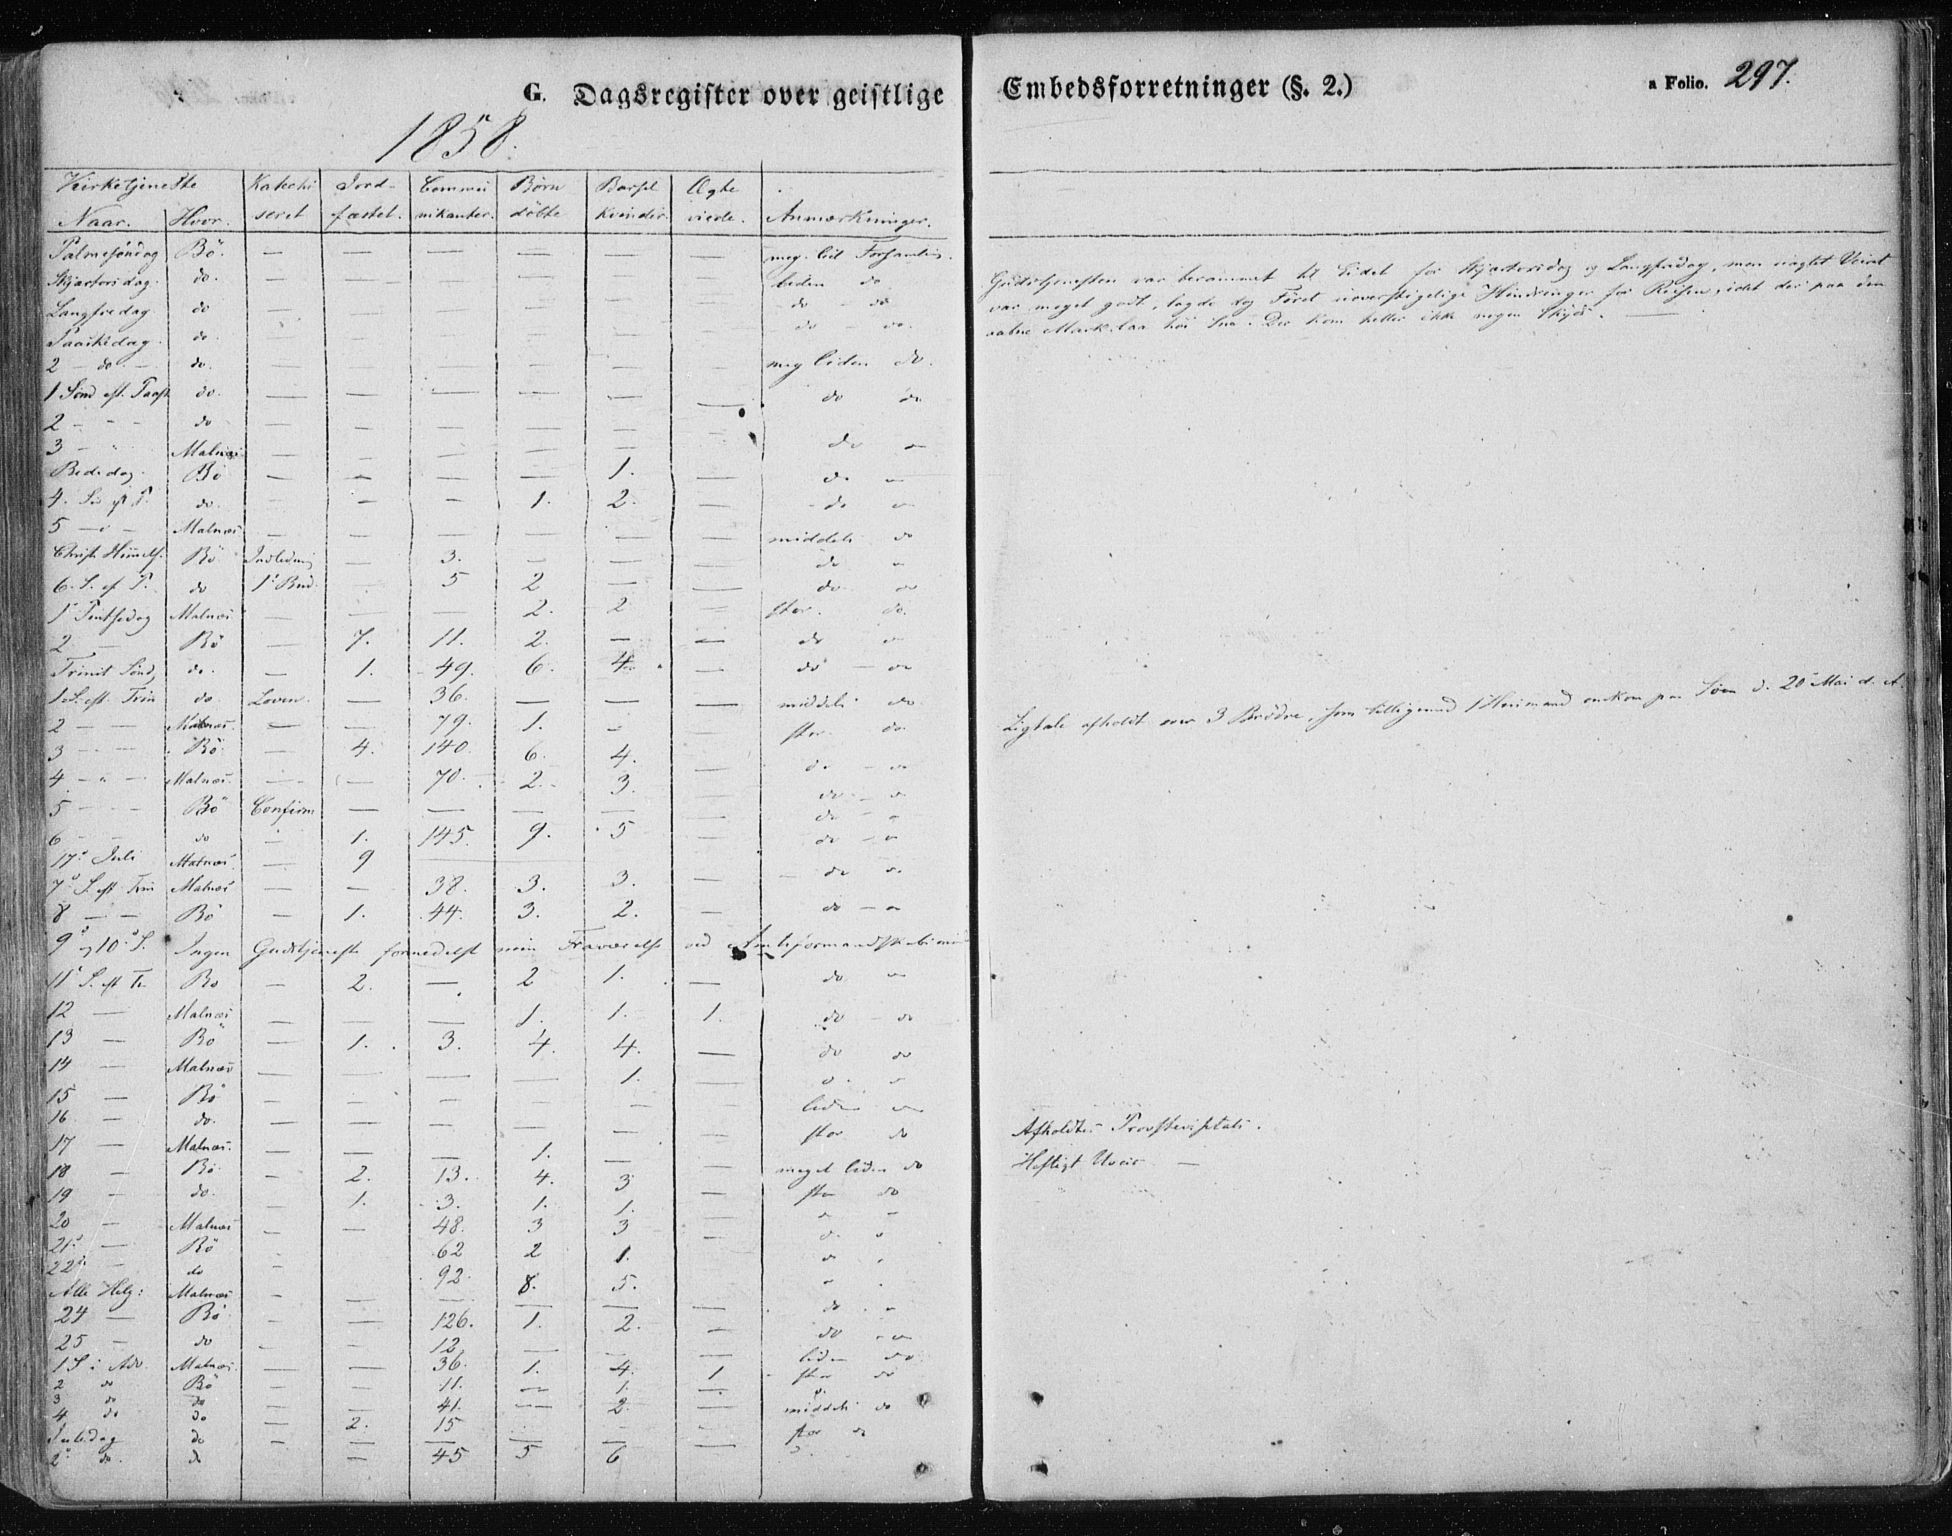 G. Dagsregister over geistlige Embedsforretninger (§. 2.) a Folio. 297.
1858.
Kirketjeneste Katechi Jord- Commu Børn Barsel Ægte
Naar. Hvor. seret fæstet. nikanter. døbte kvinder. viede. Anmærkninger.
Palmesöndag Bö. — — — — — — meg. lid. Forsamling.
Skjærtorsdag. do. — — — — — — liden do
Langfredag do — — — — — — do do
Paaskedag. do. — — — — — — do do.
2 - do - do. — — — — — — meg liden do.
1 Sönd eft. Paask do. — — — — — — do do
2 - - - do — — — — — —
3 - - Malnæs — — — — — — do -
Bededag. Bö — — — — 1. — do -
4. S. eft P. do. — — — 1. 2. — do -
5 - - Malnæs — — — — — — middels do
Christi Himmelf. Bö Indledning — 3. — — — do -
6. S. ef P. do 1ste Bud. — 5 2 — — do. -
1ste Pintsedag Malnæs — — — 2. 2 — stor. do.
2 - - Bö — 7. 11. 2. — — do -
Trinit Sönd do. — 1. 49. 6. 4. — do - -
1 S. eft. Trin do. Loven. — 36. — — — middels do
2 - - Malnæs. — — 79. 1. - — stor. do
3 - - - Bö — 4. 140. 6. 4. — do - -
4 - - - Malnæs. — — 70. 2. 3. — do - -
5 - - - Bö Confirm — — — — — do - -
6 - - do - 1. 145. 9. 5 — do - -
17de Juli Malnæs. — 9 —
7de S. eft Trin Malnæs — — 38. 3. 3. — do -
8 - - Bö — 1. 44. 3. 2. — do - -
9de og 10de S. Ingen Gudstjeneste formedelst min Fraværelse ved Amtsformandskabsmöde
11te S. eft Tr. Bö — 2. — 2 1. — do -
12 — Malnæs — — — 1. 1. 1. do - do
13 — Bö — 1. 3. 4. 4. — do do
14 — Malnæs — — — — 1. — - -
15 — Bö — — — — — — liden -
16 — do. — — — — — — stor do
17 — Malnæs. — — — 1. — —
18 — Bö. — 2. 13. 4. 3 — meget liden do
19 — do. — 1. 3. 1. 1. — stor do
20 — Malnæs — — 48. 3 3 — - -
21de — Bö — 62 2 1. - -
22de — do - 92. 8. 5. - -
Alle Helg: Malnæs - — — — — — do - -
24 — Bö. - — 126. 1. 2. — do - -
25 — do - — 12 — — — liden do
1 S i Adv. Malnæs. — — 36. 1. 4. 1 stor do
2 do Bö — — 11. — 1. —
3 do do — — 41. — 2. — middels do
4 do do — 2. 15 stor do
Juledag do — — — — — —
2den do. do — 45 5 6
Gudstjenesten var berammet til Eidet for Skjærtorsdag og Langfredag, men uagtet Veiret
var meget godt, lagde dog Föret uoverstigelige Hindringer for Reisen, idet der paa den
aabne Mark laa höi Sne. Der kom heller ikke nogen Skyds.
Ligtale afholdt over 3 Brödre, som tilligemed 1 Huusmand omkom paa Söen d. 20de Mai d. A.
Afholdtes Provstevisitats.
Heftigt Uveir —